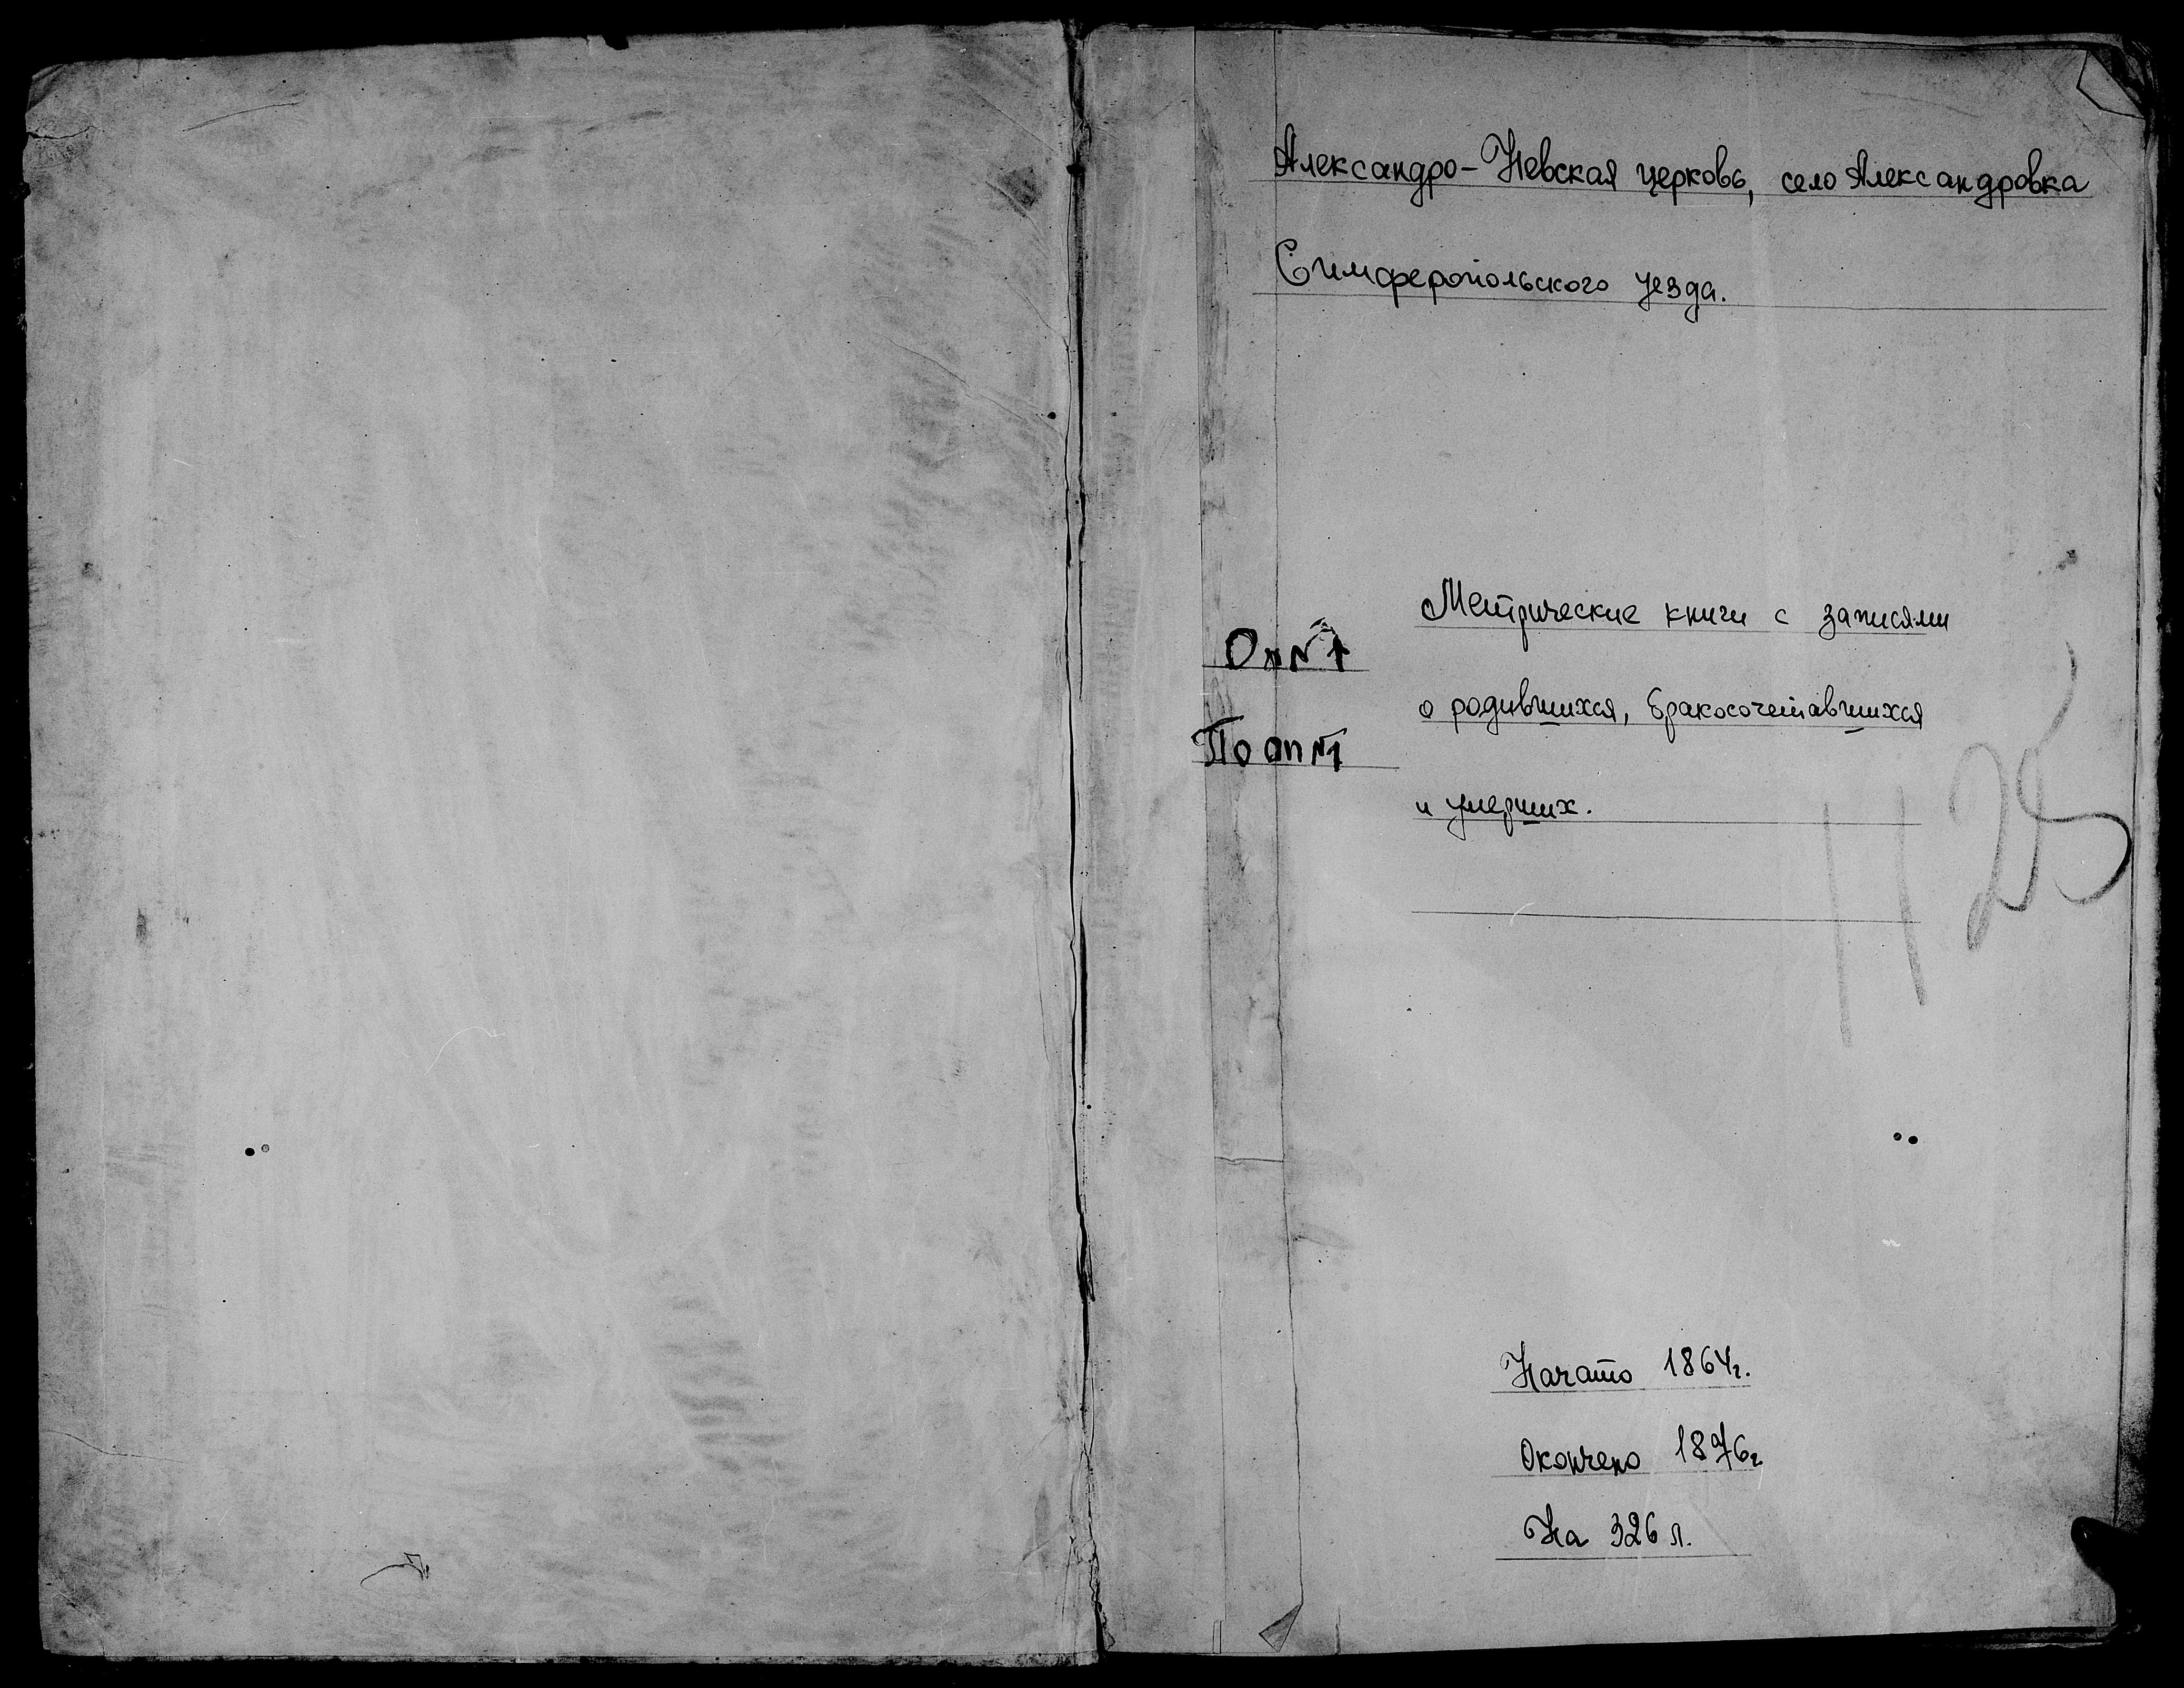 Александро-Невская церковь, село Александровка
Симферопольского уезда.
Метрические книги с записями
Оп №1
о родившихся, бракосочетавшихся
По оп №1
и умерших.
25
Начато 1864г.
Окончено 1876г.
На 326 л.